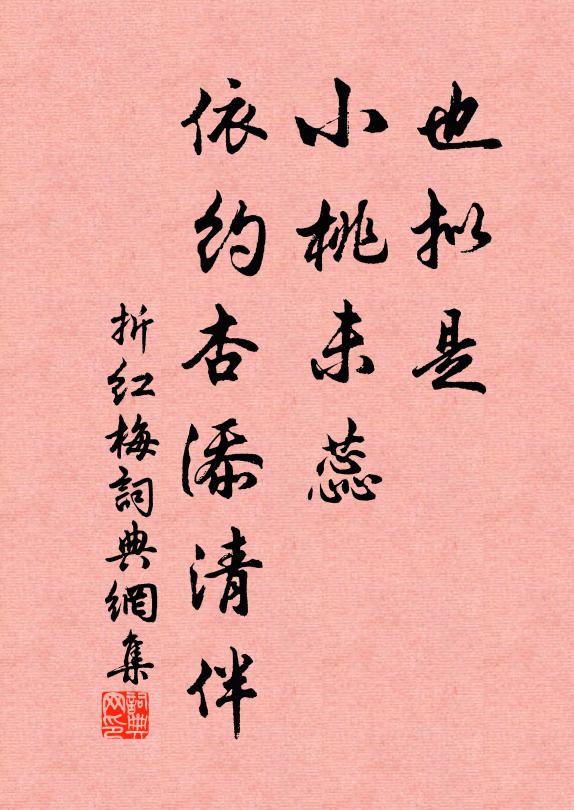 也拟是
小桃未蕊
依约杏添清伴
折红梅詞典網集
詞典
网印